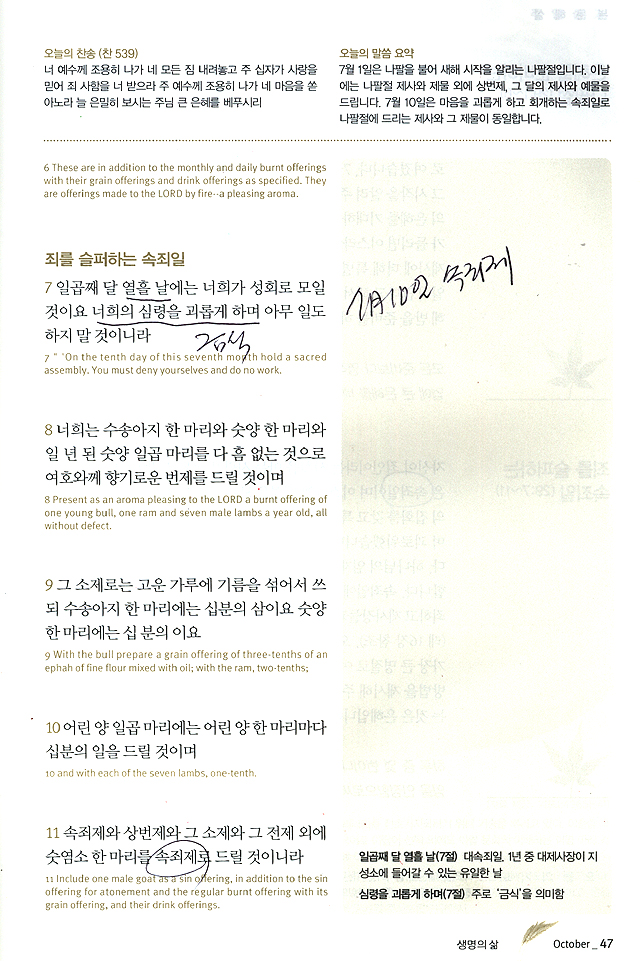 오늘의 찬송 (찬 539)
너 예수께 조용히 나가 네 모든 짐 내려놓고 주 십자가 사랑을
믿어 죄 사함을 너 받으라 주 예수께 조용히 나가 네 마음을 쏟
아노라 늘 은밀히 보시는 주님 큰 은혜를 베푸시리
오늘의 말씀 요약
7월 1일은 나팔을 불어 새해 시작을 알리는 나팔절입니다. 이날
에는 나팔절 제사와 제물 외에 상번제, 그 달의 제사와 예물을
드립니다. 7월 10일은 마음을 괴롭게 하고 회개하는 속죄일로
나팔절에 드리는 제사와 그 제물이 동일합니다.
6 These are in addition to the monthly and daily burnt offerings
with their grain offerings and drink offerings as specified. They
are offerings made to the LORD by fire--a pleasing aroma.
죄를 슬퍼하는 속죄일
7 일곱째 달 열흘 날에는 너희가 성회로 모일
것이요 너희의 심령을 괴롭게 하며 아무 일도
하지 말 것이니라
금식
7월10일 속죄제
7 " 'On the tenth day of this seventh month hold a sacred
assembly. You must deny yourselves and do no work.
8 너희는 수송아지 한 마리와 숫양 한 마리와
일 년 된 숫양 일곱 마리를 다 흠 없는 것으로
여호와께 향기로운 번제를 드릴 것이며
8 Present as an aroma pleasing to the LORD a burnt offering of
one young bull, one ram and seven male lambs a year old, all
without defect.
9 그 소제로는 고운 가루에 기름을 섞어서 쓰
되 수송아지 한 마리에는 십분의 삼이요 숫양
한 마리에는 십 분의 이요
9 With the bull prepare a grain offering of three-tenths of an
ephah of fine flour mixed with oil; with the ram, two-tenths;
10 어린 양 일곱 마리에는 어린 양 한 마리마다
십분의 일을 드릴 것이며
10 and with each of the seven lambs, one-tenth.
11 속죄제와 상번제와 그 소제와 그 전제 외에
숫염소 한 마리를 속죄제로 드릴 것이니라
11 Include one male goat as a sin offering, in addition to the sin
offering for atonement and the regular burnt offering with its
grain offering, and their drink offerings.
일곱째 달 열흘 날(7절) 대속죄일. 1년 중 대제사장이 지
성소에 들어갈 수 있는 유일한 날
심령을 괴롭게 하며(7절) 주로 '금식'을 의미함
생명의 삶
October _ 47